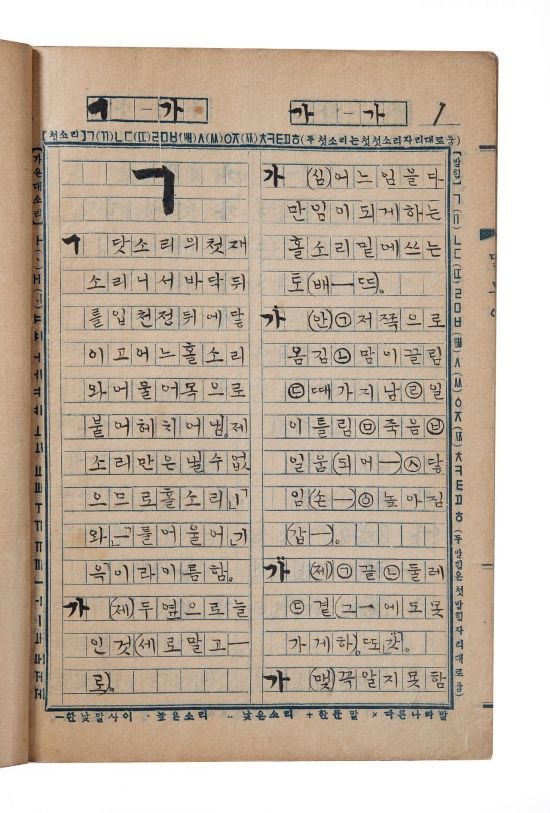 ㄱ－가
가－가
1
[첫소리]ㄱ(ㄲ)ㄴㄷ(ㄸ)ㄹㅁㅂ(ㅃ)ㅅ(ㅆ)ㅇㅈ(ㅉ)ㅊㅋㅌㅍㅎ(두첫소리는첫첫소리자리대로둠)
[가온대소리]
ㄱ
ㄱ 닷소리의첫재
소리니서바닥뒤
를입천정뒤에닿
이고어느홀소리
와어물어목으로
불어헤치어냄。제
소리만은낼수없
으므로홀소리「ㅣ」
와「ㅡ」를어울어「기
윽」이라이름함。
가 (제)두옆으로늘
인것(세로말고―
로)。
가 (심)어느임을다
만임이되게하는
홀소리밑에쓰는
토(배―뜨)。
가 (안)㉠저쪽으로
옴김㉡맘이끌림
㉢때가지남㉣일
이틀림㉤죽음㉥
일움(되어―)㉦닿
임(손―)㉧높아짐
(갑―)。
가 (제)㉠끝㉡둘레
㉢곁(그―에도못
가게하)。또「갓」。
가 (맺)꼭알지못함
[받힘]ㄱ(ㄲ)ㄴㄷ(ㄸ)ㄹㅁㅂ(ㅃ)ㅅ(ㅆ)ㅇㅈ(ㅉ)ㅊㅋㅌㅍㅎ(두받힘은첫받힘자리대로둠)
－한낮말사이 ·높은소리 ‥낮은소리 +한문말 ×다른나라말